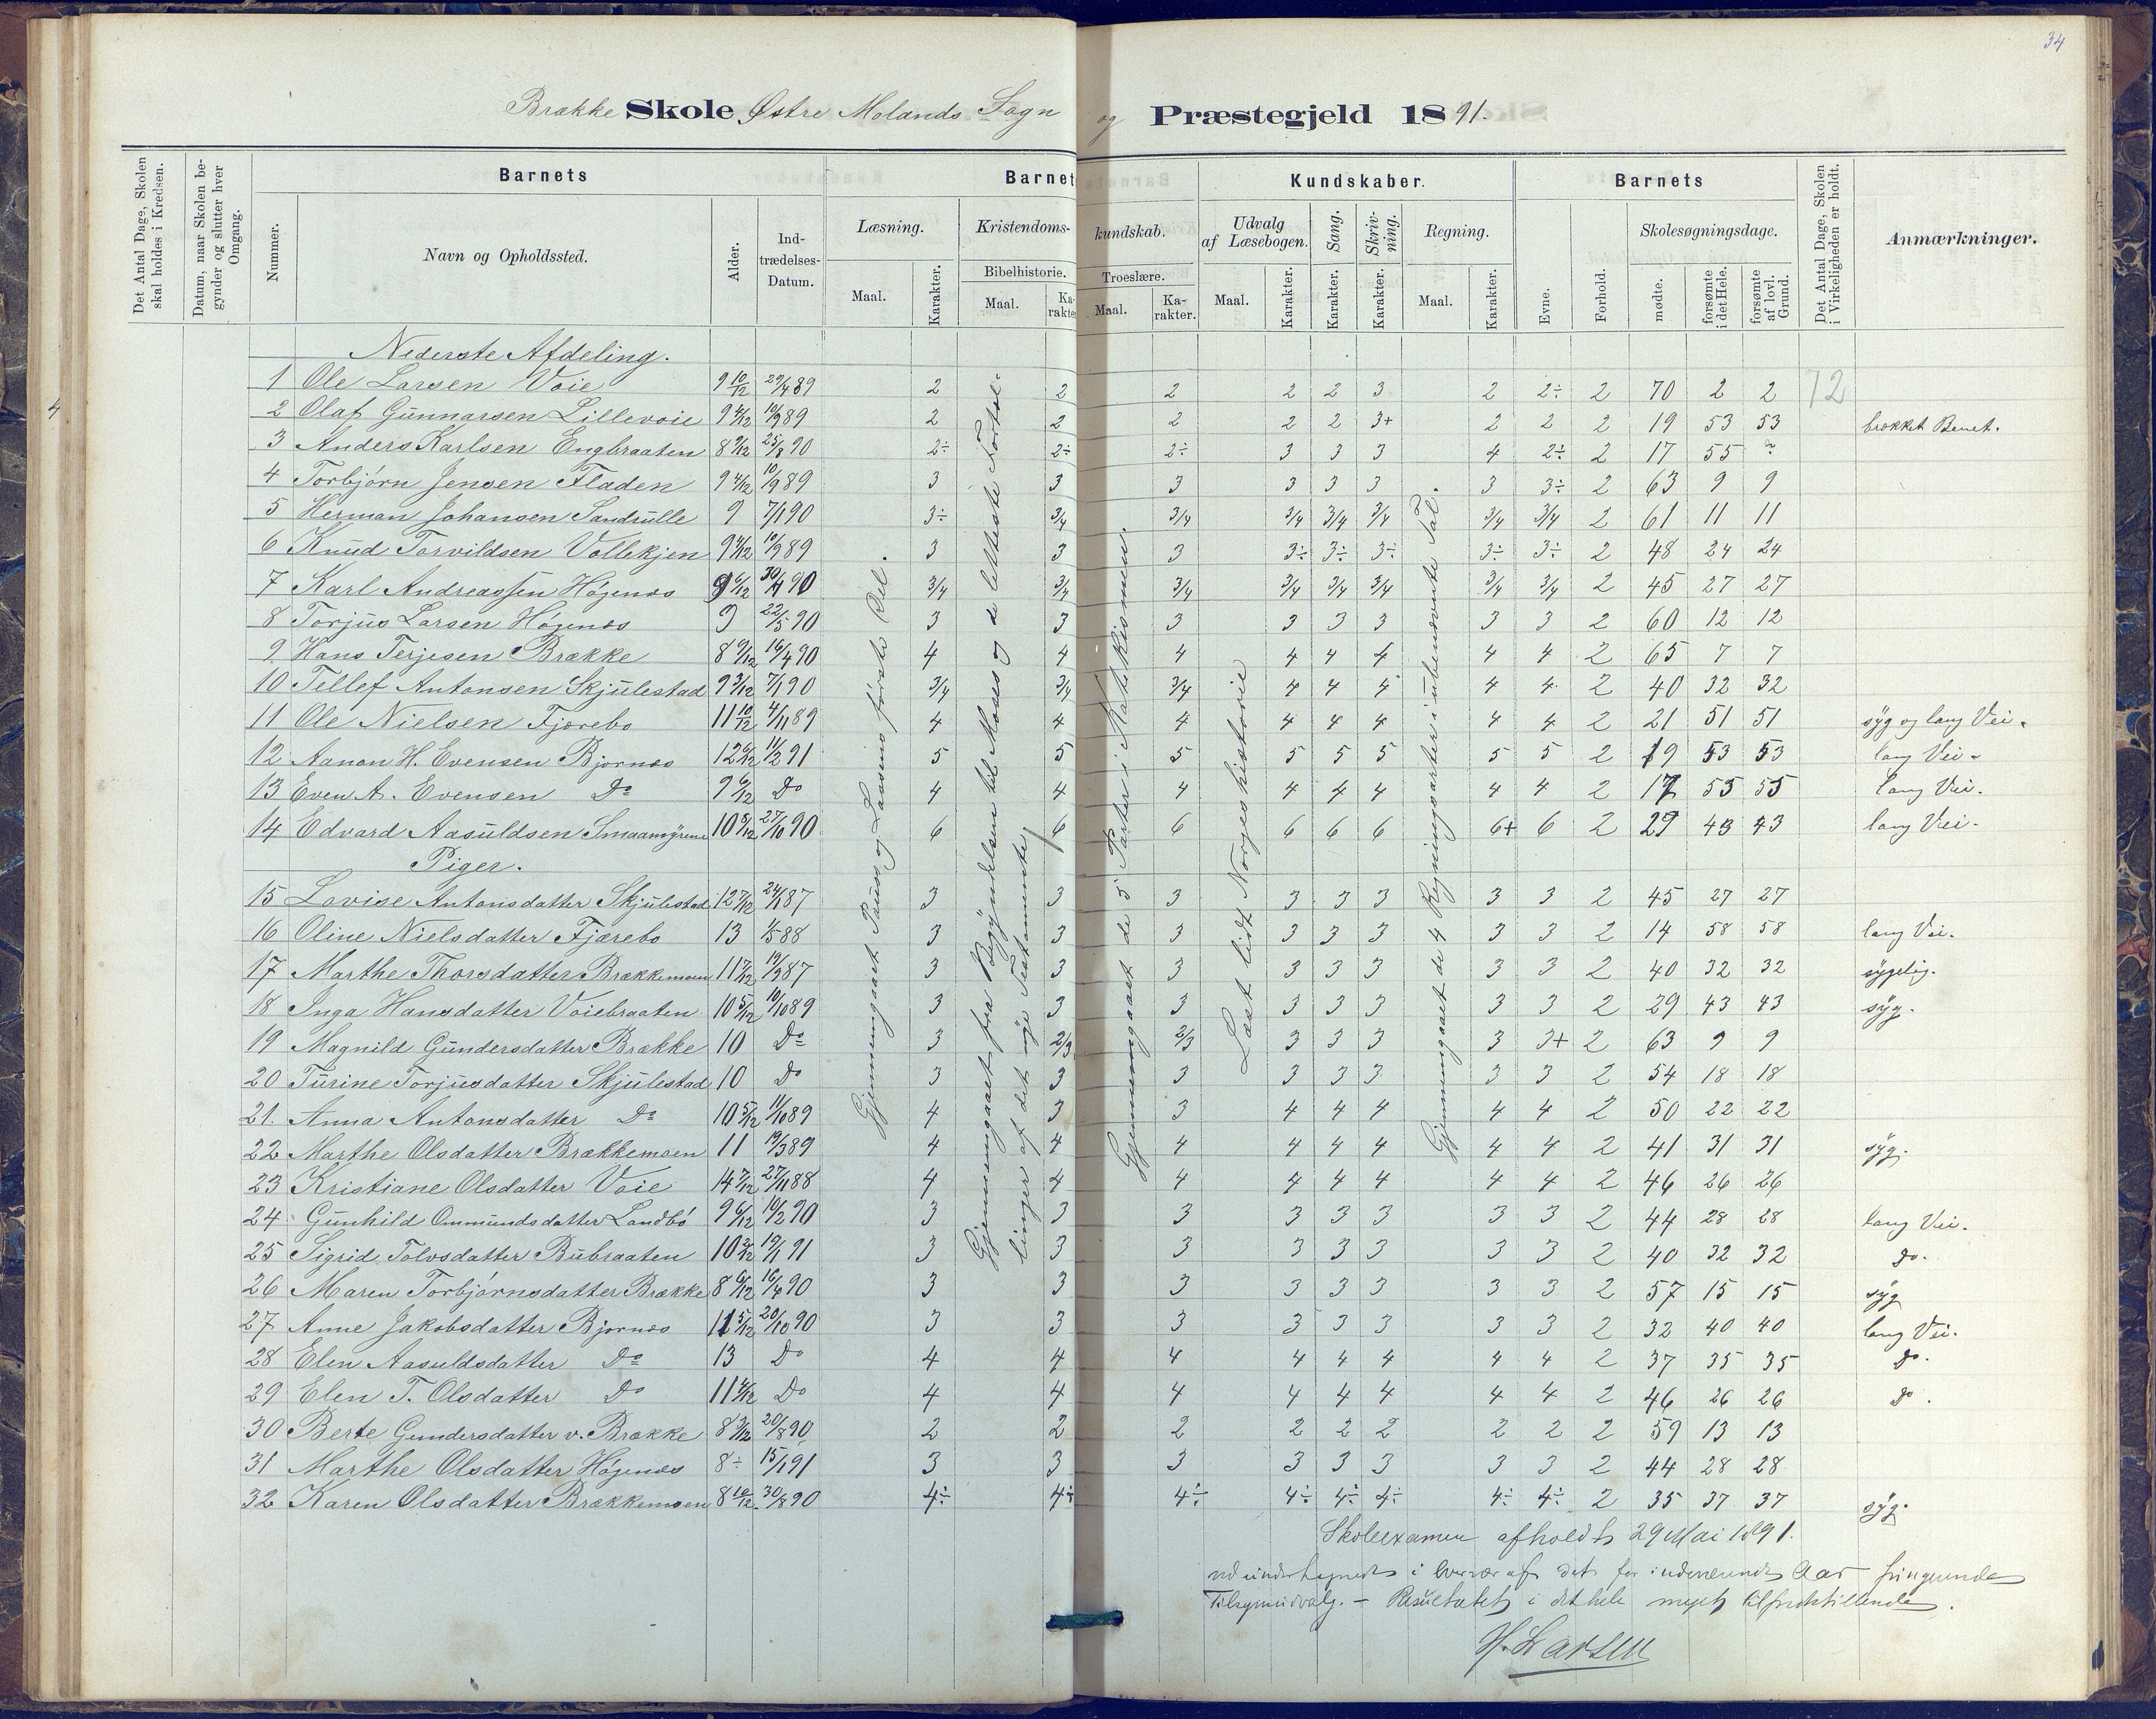 34
Brække Skole, Østre Molands Sogn og Præstegjeld 1891.
Det Antal Dage, Skolen skal holdes i Kredsen.
Datum, naar Skolen begynder og slutter hver Omgang.
Barnets
Nummer.
Navn og Opholdssted.
Alder.
Indtrædelses-Datum.
Barnets Kundskaber.
Læsning.
Maal.
Karakter.
Kristendomskundskab.
Bibelhistorie.
Maal.
Karakter.
Troeslære.
Maal.
Karakter.
Udvalg af Læsebogen.
Maal.
Karakter.
Sang.
Karakter.
Skrivning.
Karakter.
Regning.
Maal.
Karakter.
Barnets
Evne.
Forhold.
Skolesøgningsdage.
mødte.
forsømte i det Hele.
forsømte af lovl. Grund.
Det Antal Dage, Skolen i Virkeligheden er holdt.
Anmærkninger.
Nederste Afdeling.
1 Ole Larsen Voie 9 10/12 29/4 89 2 2 2 2 2 3 2 2÷ 2 70 2 2 72
2 Olaf Gunnarsen Lillevoie 9 4/12 10/9 89 2 2 2 2 2 3+ 2 2 2 19 53 53 brækket Benet.
3 Anders Karlsen Engbraaten 8 9/12 25/8 90 2÷ 2÷ 2÷ 3 3 3 4 2÷ 2 17 55
4 Torbjørn Jensen Fladen 9 4/12 10/9 89 3 3 3 3 3 3 3 3÷ 2 63 9 9
5 Herman Johansen Sandrulle 9 7/1 90 3÷ 3/4 3/4 3/4 3/4 3/4 3/4 3/4 2 61 11 11
6 Knud Torvildsen Vollekjen 9 4/12 10/9 89 3 3 3 3÷ 3÷ 3÷ 3÷ 3÷ 2 48 24 24
7 Karl Andreassen Høgenes 9 6/12 30/4 90 3/4 3/4 3/4 3/4 3/4 3/4 3/4 3/4 2 45 27 27
8 Torjus Larsen Høgenes 9 22/5 90 3 3 3 3 3 3 3 3 2 60 12 12
9 Hans Terjesen Brække 8 9/12 16/4 90 4 4 4 4 4 4 4 4 2 65 7 7
10 Tellef Antonsen Skjulestad 9 3/12 7/1 90 3/4 3/4 3/4 4 4 4 4 4 2 40 32 32
11 Ole Nielsen Fjærebo 11 10/12 4/11 89 4 4 4 4 4 4 4 4 2 21 51 51 syg og lang Vei.
12 Aanon H. Evensen Bjornes 12 6/12 11/2 91 5 5 5 5 5 5 5 5 2 19 53 53 lang Vei.
13 Even A. Evensen Do 9 6/12 Do 4 4 4 4 4 4 4 4 2 17 55 55 lang Vei.
14 Edvard Aasuldsen Smaamyrene 10 5/12 27/10 90 6 6 6 6 6 6 6+ 6 2 29 43 43 lang Vei.
Piger.
15 Lovise Antonsdatter Skjulestad 12 7/12 24/1 87 3 3 3 3 3 3 3 3 2 45 27 27
16 Oline Nielsdatter Fjærebo 13 1/5 88 3 3 3 3 3 3 3 3 2 14 58 58 lang Vei.
17 Marthe Thorsdatter Brækkemoen 11 7/12 19/9 87 3 3 3 3 3 3 3 3 2 40 32 32 sygelig.
18 Inga Hansdatter Voiebraaten 10 5/12 10/10 89 3 3 3 3 3 3 3 3 2 29 43 43 syg.
19 Magnild Gundersdatter Brække 10 Do 3 2/3 2/3 3 3 3 3 3+ 2 63 9 9
20 Turine Torjusdatter Skjulestad 10 Do 3 3 3 3 3 3 3 3 2 54 18 18
21. Anna Antonsdatter Do 10 5/12 11/10 89 4 3 3 4 4 4 4 4 2 50 22 22
22 Marthe Olsdatter Brækkemoen 11 19/3 89 4 4 4 4 4 4 4 4 2 41 31 31 syg.
23 Kristiane Olsdatter Voie 14 7/12 27/11 88 4 4 4 4 4 4 4 4 2 46 26 26
24 Gunhild Ommundsdatter Landbö 9 6/12 10/2 90 3 3 3 3 3 3 3 3 2 44 28 28 lang Vei.
25 Sigrid Tolvsdatter Bubraaten 10 2/12 19/1 91 3 3 3 3 3 3 3 3 2 40 32 32 Do.
26 Maren Torbjørnsdatter Brække 8 6/12 16/4 90 3 3 3 3 3 3 3 3 2 57 15 15 syg
27 Anne Jakobsdatter Bjornes 11 5/12 20/10 90 3 3 3 3 3 3 3 3 2 32 40 40 lang Vei.
28 Elen Aasuldsdatter Do 13 Do 4 4 4 4 4 4 4 4 2 37 35 35 Do.
29 Elen T. Olsdatter Do 11 4/12 Do 4 4 4 4 4 4 4 4 2 46 26 26 Do.
30 Berte Gundersdatter v. Brække 8 3/12 20/8 90 2 2 2 2 2 2 2 2 2 59 13 13
31 Marthe Olsdatter Høgenes 8÷ 15/1 91 3 3 3 3 3 3 3 3 2 44 28 28
32 Karen Olsdatter Brækkemoen 8 10/12 30/8 90 4÷ 4÷ 4÷ 4÷ 4÷ 4÷ 4÷ 4÷ 2 35 37 37 syg.
Gjennemgaaet Pauss og Lassens første Del.
Gjennemgaaet fra Begyndelsen til Moses og de letteste Fortællinger af det nye Testamente
Gjennemgaaet de 5 Parter i Katekismen.
Læst lidt Norgeshistorie
Gjennemgaaet de 4 Regningsarter i ubenævnte Tal.
Skoleexamen afholdt 29 Mai 1891.
ved undertegnede i Overvær af det for indeværende Aar fungerende
Tilsynsudvalg. – Resultatet i det hele meget tilfredsstillende.
H. Larsen
4